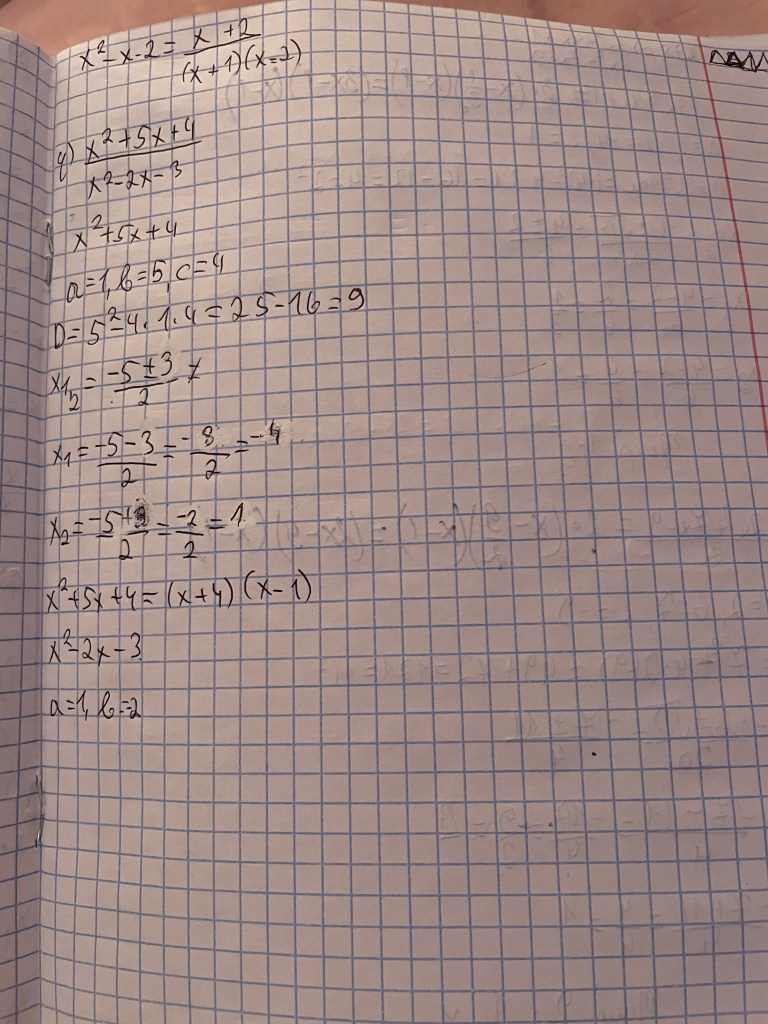 x²-x-2 = x+2/(x+1)(x-2)
4) x²+5x+4/x²-2x-3
x²+5x+4
a=1, b=5, c=4
D=5²-4·1·4=25-16=9
x₁,₂ = -5±3/2
x₁ = -5-3/2 = -8/2 = -4
x₂ = -5+3/2 = -2/2 = 1
x²+5x+4=(x+4)(x-1)
x²-2x-3
a=1, b=-2